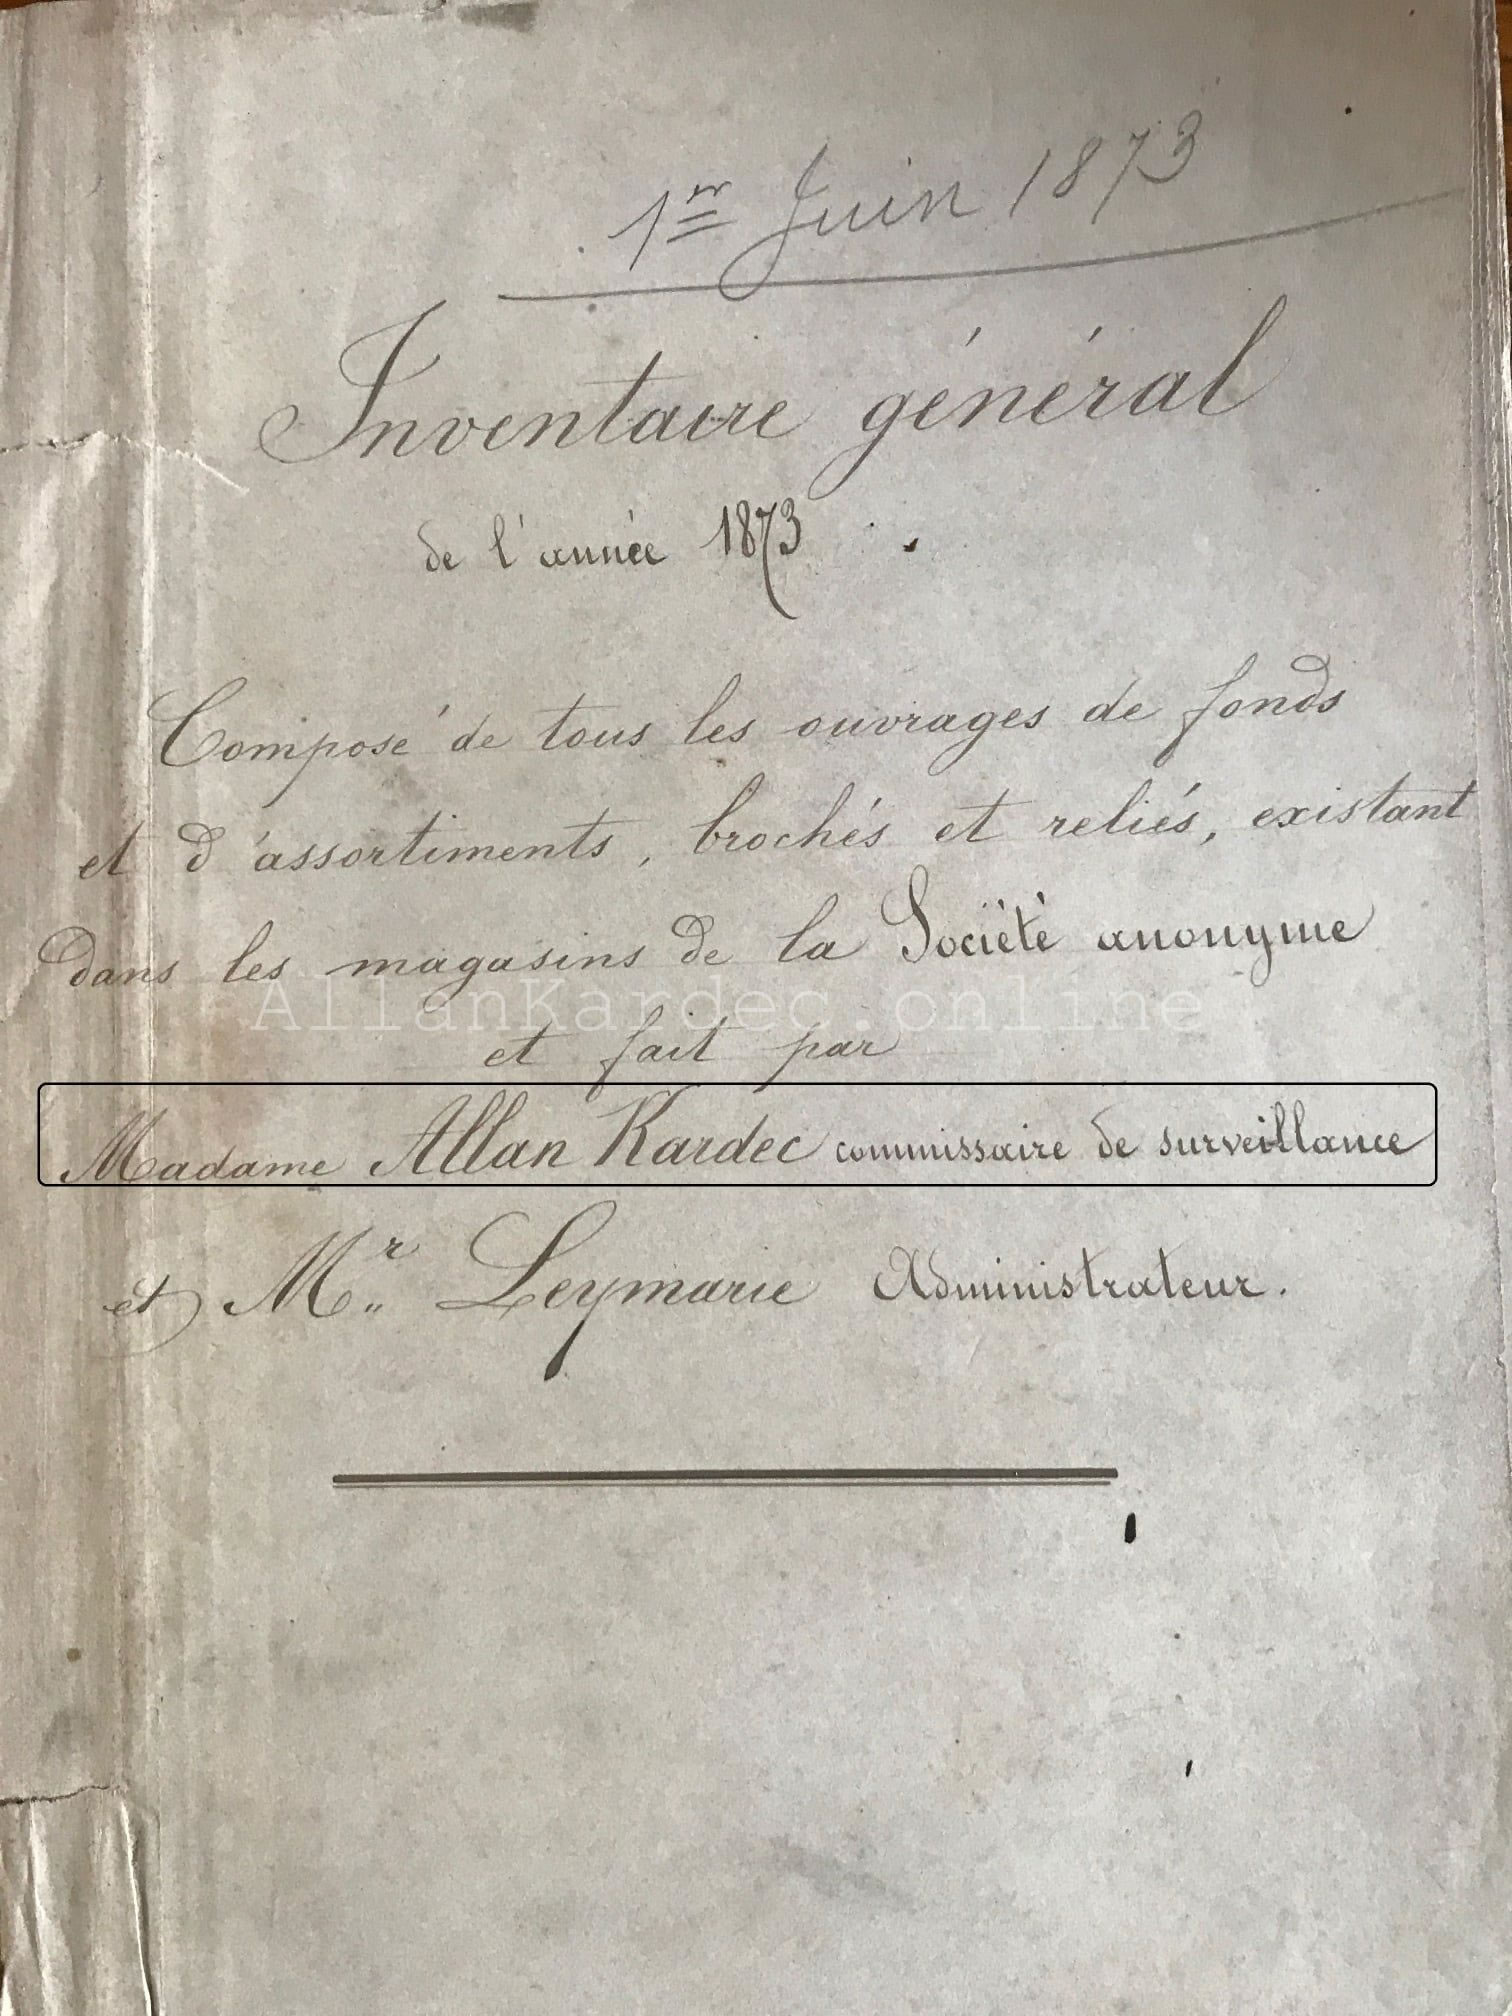 1er Juin 1873
Inventaire général
de l'année 1873
Composé de tous les ouvrages de fonds
et d'assortiments, brochés et reliés, existant
dans les magasins de la Société anonyme
AllanKardec.online
et fait par
Madame Allan Kardec commissaire de surveillance
et Mr. Leymarie Administrateur.